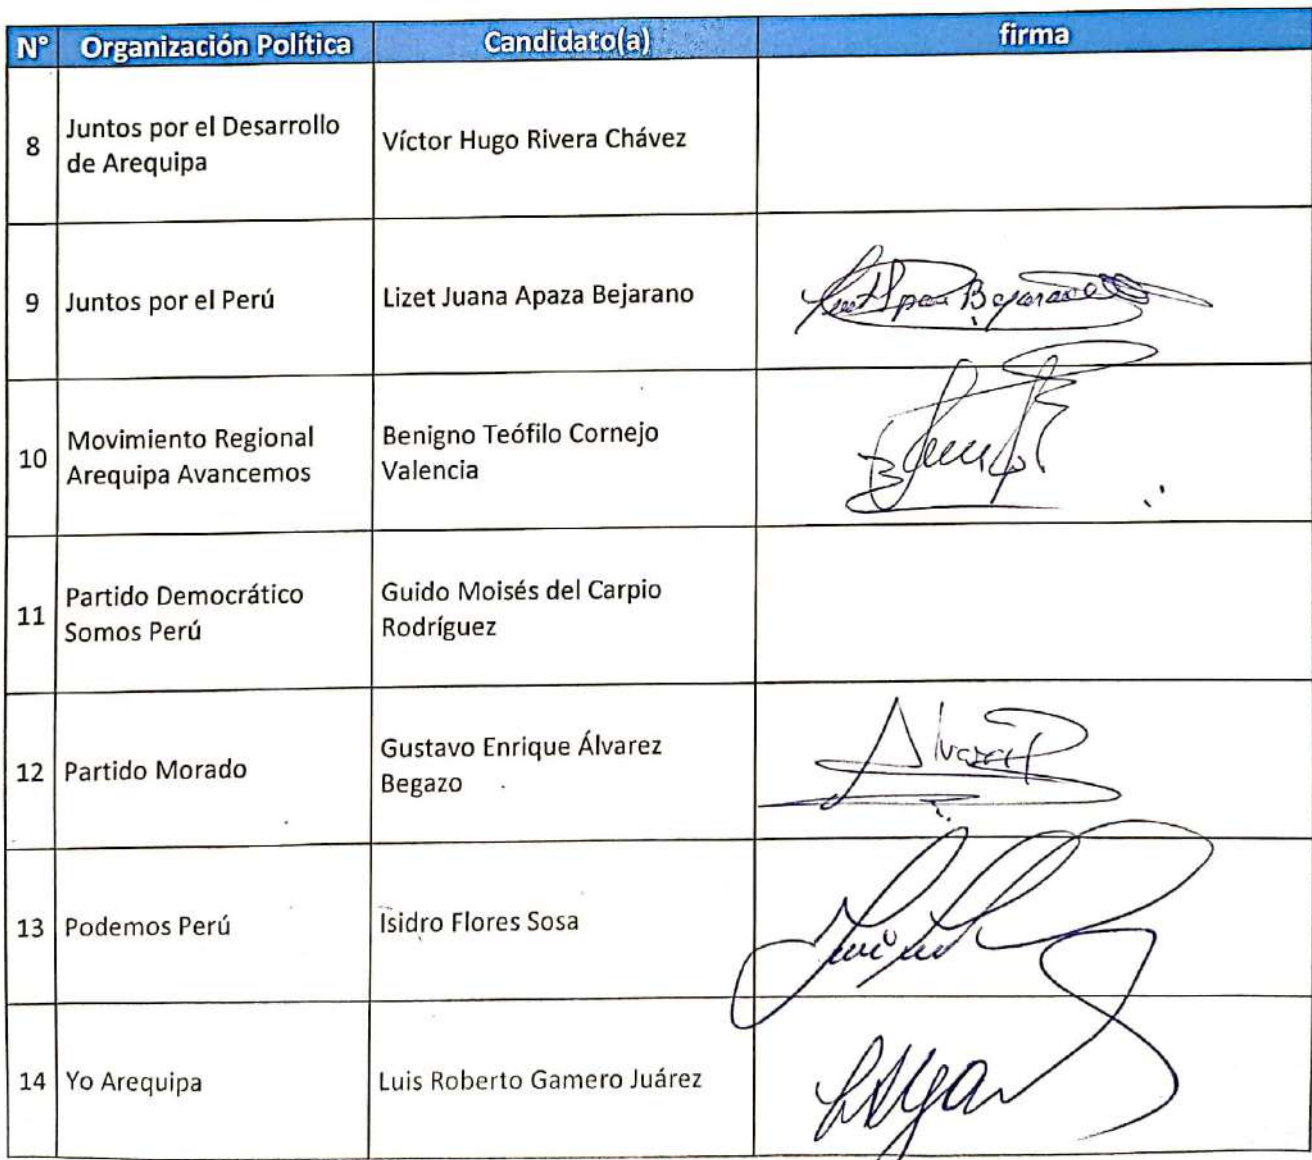 N° Organización Política Candidato(a) firma
8 Juntos por el Desarrollo
de Arequipa
Víctor Hugo Rivera Chávez
9 Juntos por el Perú Lizet Juana Apaza Bejarano
10 Movimiento Regional
Arequipa Avancemos
Benigno Teófilo Cornejo
Valencia
11 Partido Democrático
Somos Perú
Guido Moisés del Carpio
Rodríguez
12 Partido Morado
Gustavo Enrique Álvarez
Begazo
13 Podemos Perú Isidro Flores Sosa
14 Yo Arequipa Luis Roberto Gamero Juárez